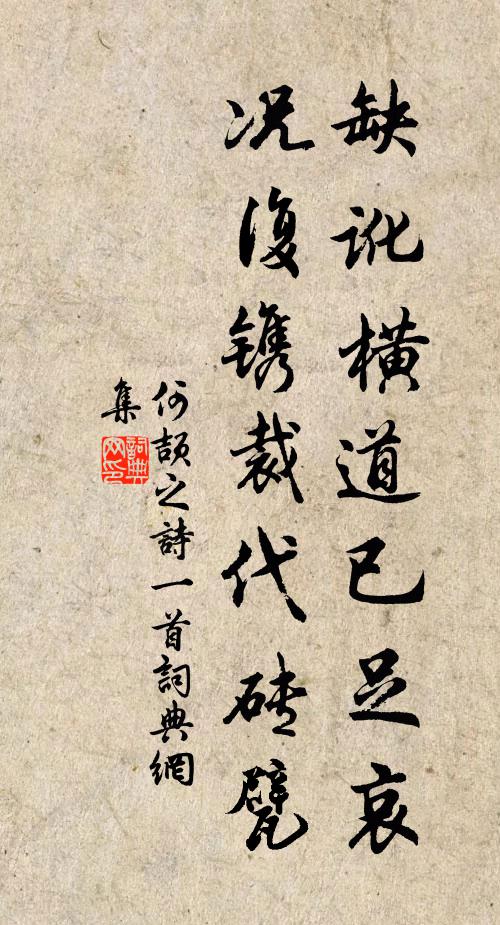 缺讹横道已足哀
况复镌裁代砖甓
何颉之詩一首詞典網
集
詞典网印